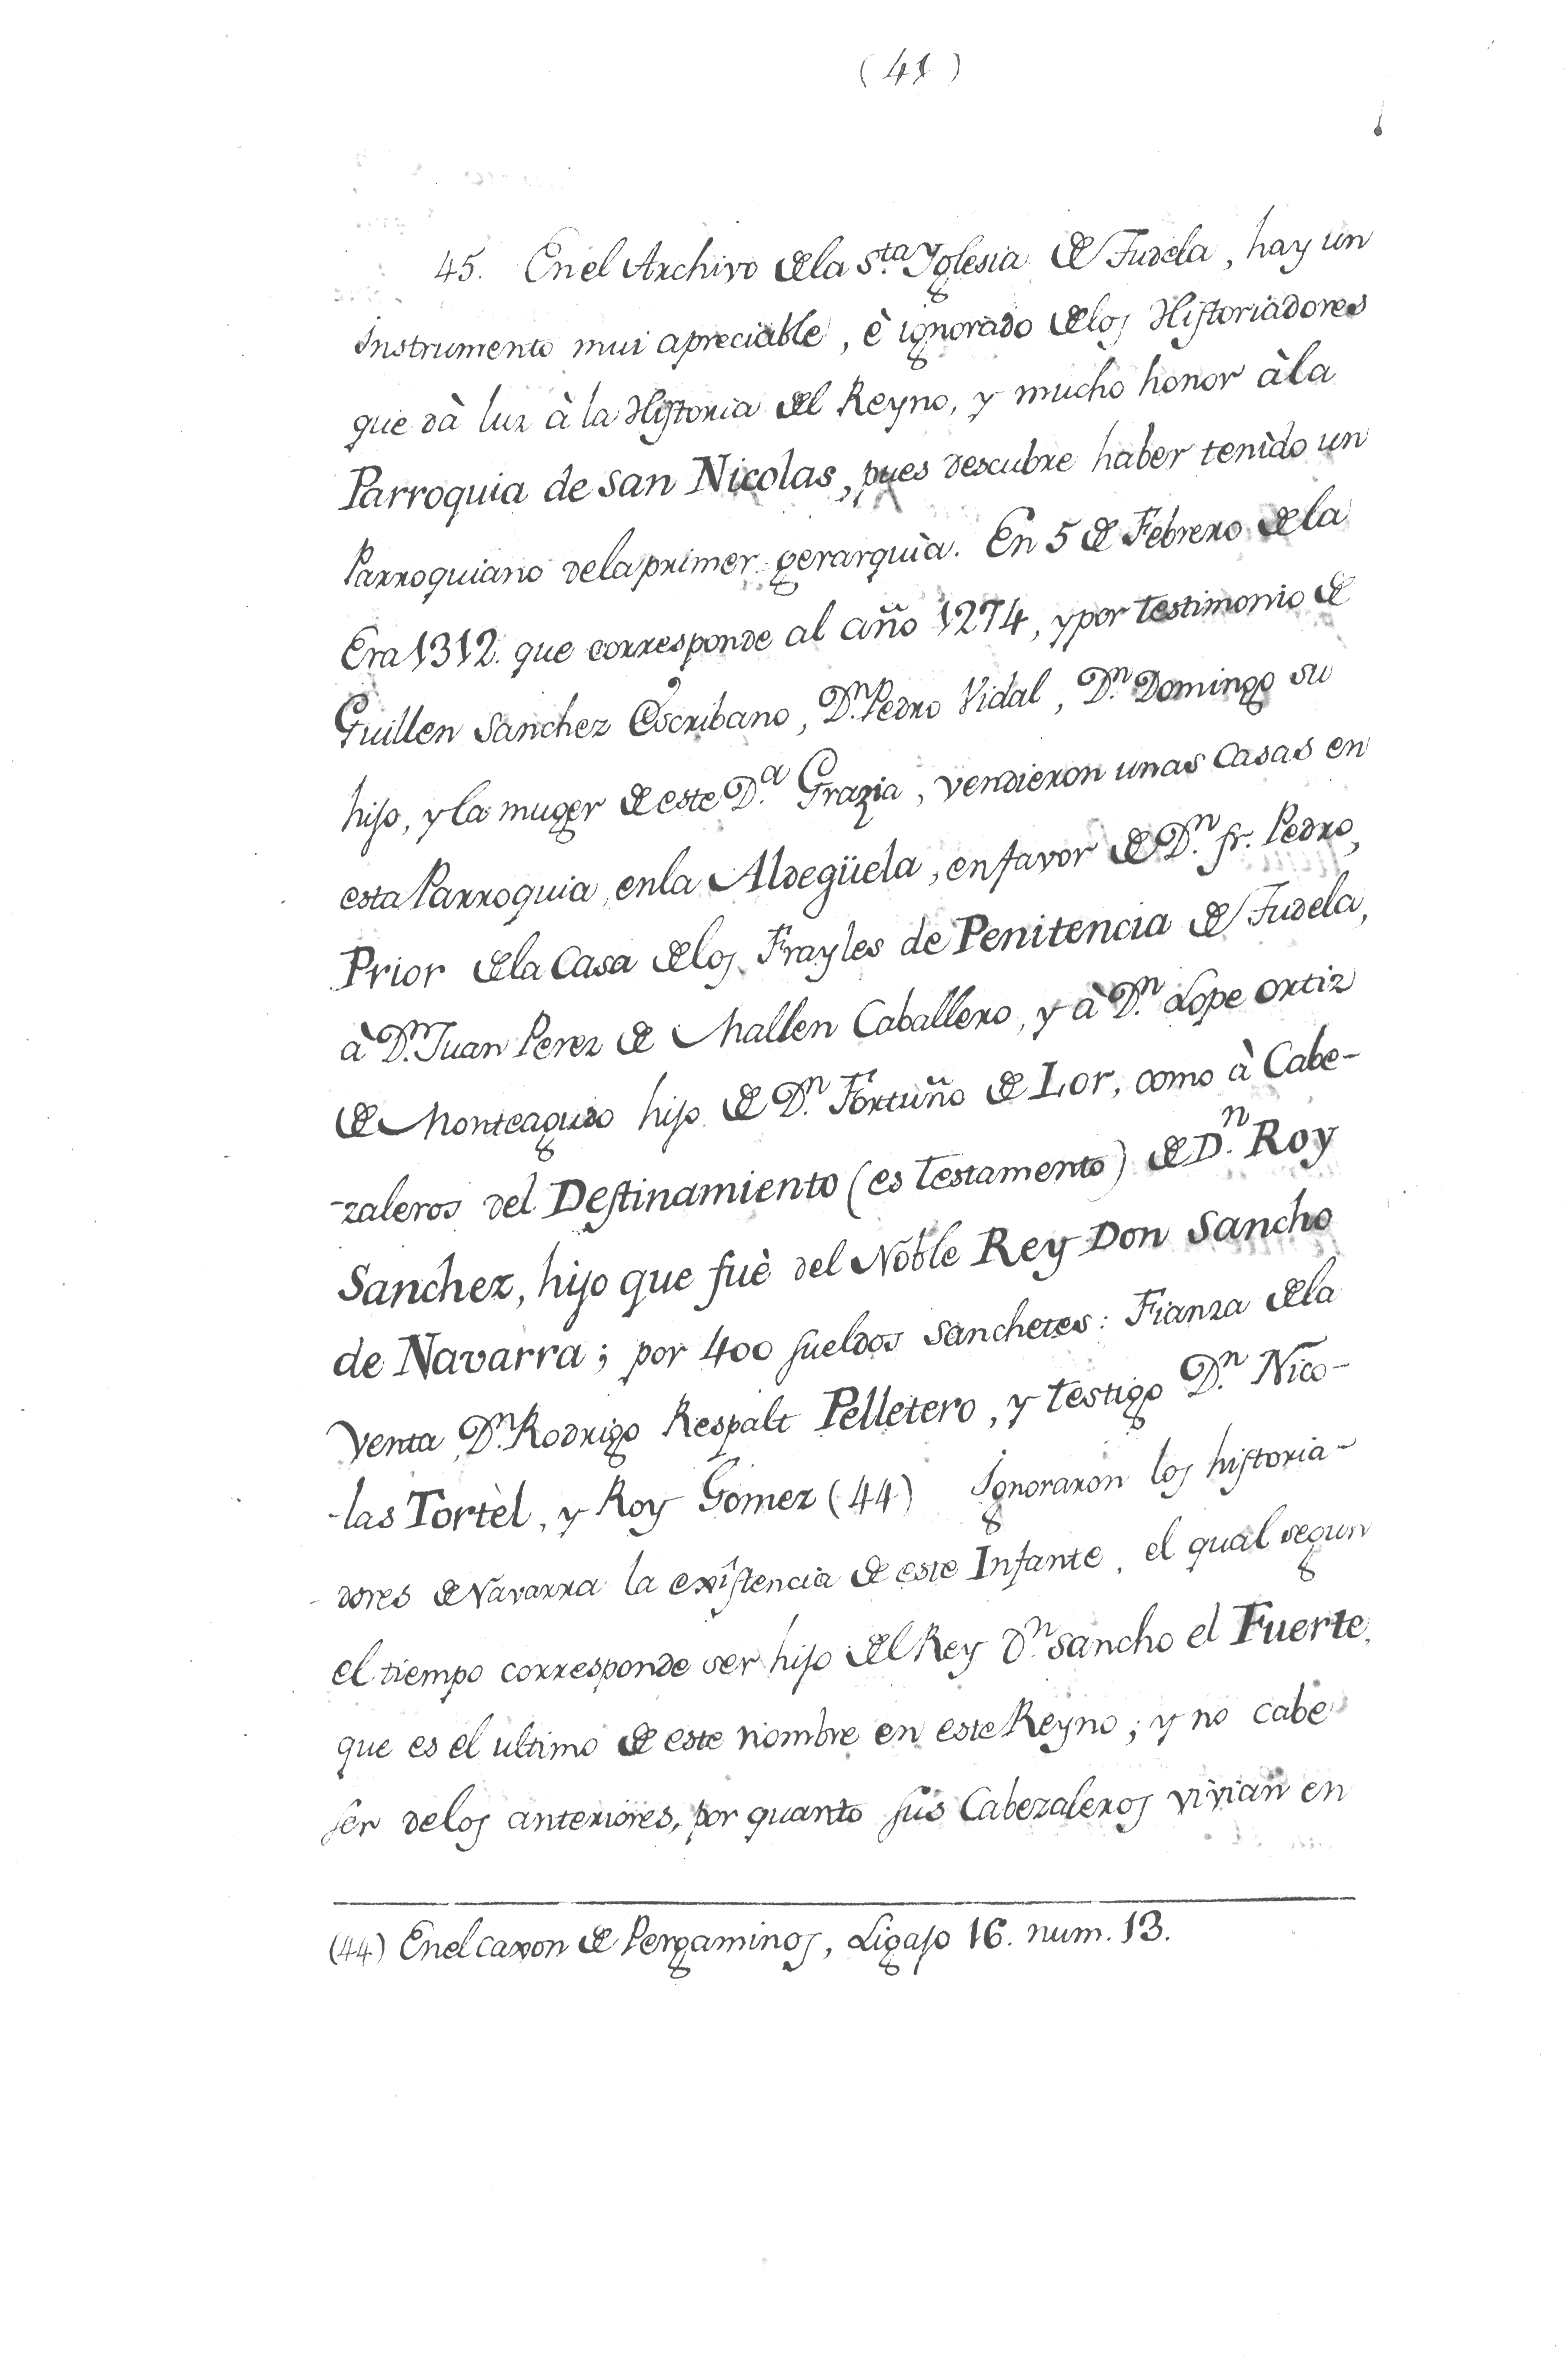 (41)
45. En el Archivo de la S.ta Yglesia de Tudela, hay un
instrumento mui apreciable, è ignorado de los Historiadores
que dà luz à la Historia del Reyno, y mucho honor à la
Parroquia de San Nicolas, pues descubre haber tenìdo un
Parroquiano de la primer gerarquìa. En 5 de Febrero de la
Era 1312. que corresponde al año 1274, y por testimonio de
Guillen Sanchez Escribano, D.n Pedro Vidal, D.n Domingo su
hijo, y la muger de este D.a Grazia, vendieron unas Casas en
esta Parroquia, en la Aldegüela, en favor de D.n fr. Pedro,
Prior de la Casa de los Frayles de Penitencia de Tudela,
à D.n Juan Perez de Mallen Caballero, y à D.n Lope Ortiz
de Monteagudo hijo de D.n Fortuño de Lor, como à Cabe-
-zaleros del Destinamiento (es testamento) de D.n Roy
Sanchez, hijo que fuè del Noble Rey Don Sancho
de Navarra; por 400 sueldos Sanchetes: Fianza de la
Venta D.n Rodrigo Respalt Pelletero, y testigo D.n Nico-
-las Tortèl, y Roy Gomez (44) Ignoraron los historia-
dores de Navarra la exîstencia de este Infante, el qual segun
el tiempo corresponde ser hijo del Rey D.n Sancho el Fuerte,
que es el ultimo de este nombre en este Reyno; y no cabe
ser de los anteriores, por quanto sus Cabezaleros vivian en
(44) En el caxon de Pergaminos, Ligajo 16. num. 13.